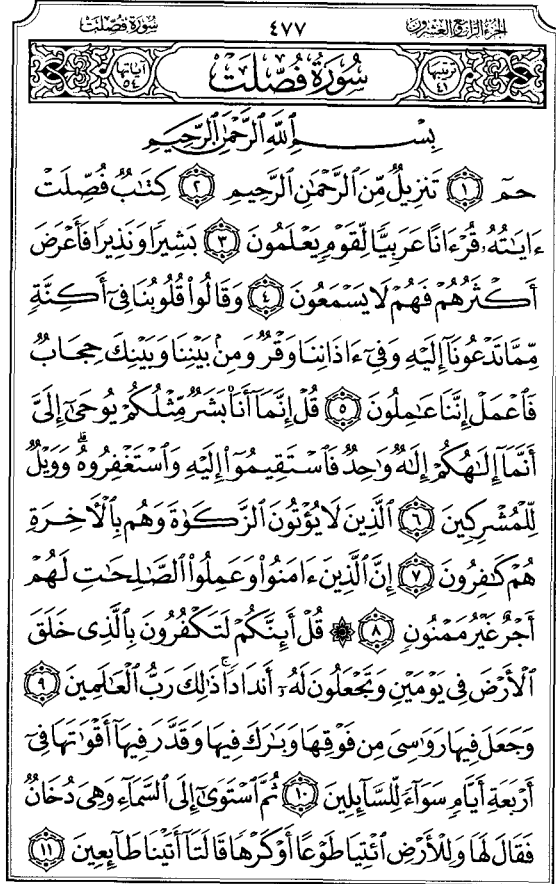 سُورَةُ فُصِّلَتْ ٤٧٧ الجزء الرابع والعشرون
ترتيبها ٤١ سُورَةُ فُصِّلَتْ آياتها ٥٤
بِسْمِ ٱللَّهِ ٱلرَّحْمَٰنِ ٱلرَّحِيمِ
حمٓ ١ تَنزِيلٌ مِّنَ ٱلرَّحْمَٰنِ ٱلرَّحِيمِ ٢ كِتَٰبٌ فُصِّلَتْ
ءَايَٰتُهُۥ قُرْءَانًا عَرَبِيًّا لِّقَوْمٍ يَعْلَمُونَ ٣ بَشِيرًا وَنَذِيرًا فَأَعْرَضَ
أَكْثَرُهُمْ فَهُمْ لَا يَسْمَعُونَ ٤ وَقَالُوا۟ قُلُوبُنَا فِىٓ أَكِنَّةٍ
مِّمَّا تَدْعُونَآ إِلَيْهِ وَفِىٓ ءَاذَانِنَا وَقْرٌ وَمِنۢ بَيْنِنَا وَبَيْنِكَ حِجَابٌ
فَٱعْمَلْ إِنَّنَا عَٰمِلُونَ ٥ قُلْ إِنَّمَآ أَنَا۠ بَشَرٌ مِّثْلُكُمْ يُوحَىٰٓ إِلَىَّ
أَنَّمَآ إِلَٰهُكُمْ إِلَٰهٌ وَٰحِدٌ فَٱسْتَقِيمُوٓا۟ إِلَيْهِ وَٱسْتَغْفِرُوهُ ۗ وَوَيْلٌ
لِّلْمُشْرِكِينَ ٦ ٱلَّذِينَ لَا يُؤْتُونَ ٱلزَّكَوٰةَ وَهُم بِٱلْءَاخِرَةِ
هُمْ كَٰفِرُونَ ٧ إِنَّ ٱلَّذِينَ ءَامَنُوا۟ وَعَمِلُوا۟ ٱلصَّٰلِحَٰتِ لَهُمْ
أَجْرٌ غَيْرُ مَمْنُونٍ ٨ ۞ قُلْ أَئِنَّكُمْ لَتَكْفُرُونَ بِٱلَّذِى خَلَقَ
ٱلْأَرْضَ فِى يَوْمَيْنِ وَتَجْعَلُونَ لَهُۥٓ أَندَادًا ۚ ذَٰلِكَ رَبُّ ٱلْعَٰلَمِينَ ٩
وَجَعَلَ فِيهَا رَوَٰسِىَ مِن فَوْقِهَا وَبَٰرَكَ فِيهَا وَقَدَّرَ فِيهَآ أَقْوَٰتَهَا فِىٓ
أَرْبَعَةِ أَيَّامٍ سَوَآءً لِّلسَّآئِلِينَ ١٠ ثُمَّ ٱسْتَوَىٰٓ إِلَى ٱلسَّمَآءِ وَهِىَ دُخَانٌ
فَقَالَ لَهَا وَلِلْأَرْضِ ٱئْتِيَا طَوْعًا أَوْ كَرْهًا قَالَتَآ أَتَيْنَا طَآئِعِينَ ١١